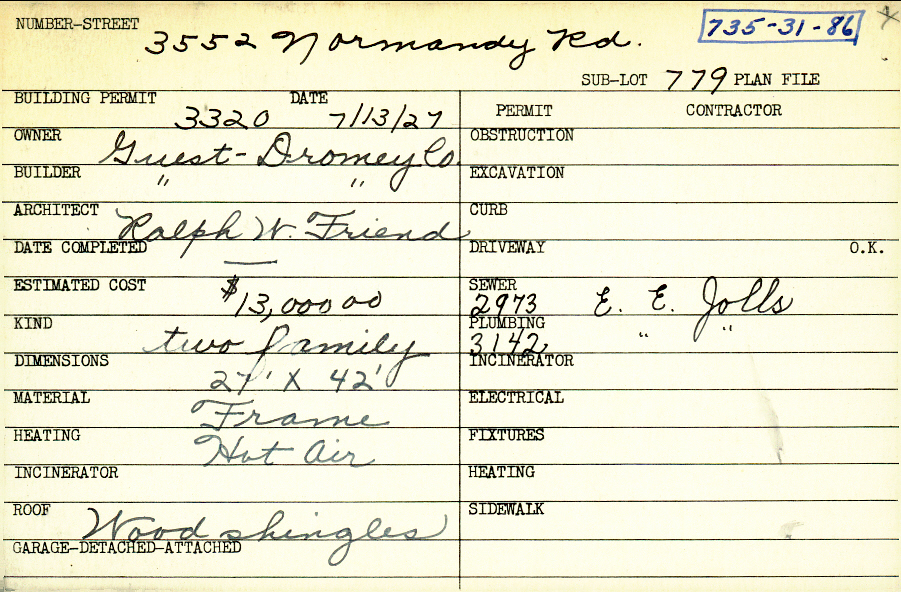 NUMBER-STREET 3552 Normandy Rd. 735-31-86 X
SUB-LOT 779 PLAN FILE
BUILDING PERMIT 3320 DATE 7/13/27
PERMIT CONTRACTOR
OWNER Guest-Dromey Co.
OBSTRUCTION
BUILDER " "
EXCAVATION
ARCHITECT Ralph W. Friend
CURB
DATE COMPLETED —
DRIVEWAY O.K.
ESTIMATED COST $13,000 00
SEWER 2973 E. E. Jolls
KIND two family
PLUMBING 3142 " "
DIMENSIONS 27' X 42'
INCINERATOR
MATERIAL Frame
ELECTRICAL
HEATING Hot Air
FIXTURES
INCINERATOR
HEATING
ROOF Wood shingles
SIDEWALK
GARAGE-DETACHED-ATTACHED